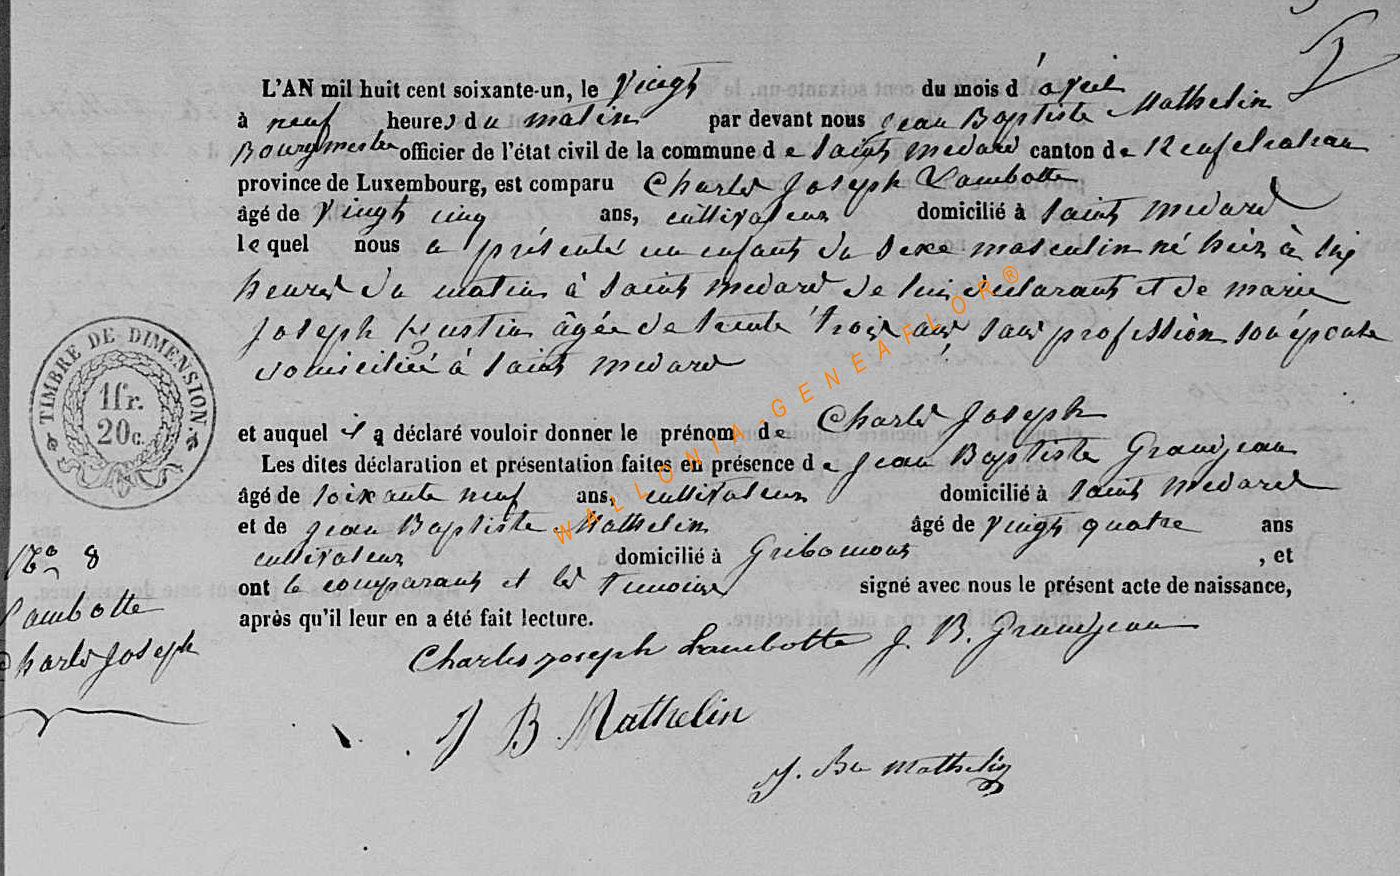 L'AN mil huit cent soixante-un, le vingt du mois d'avril
à neuf heures du matin par devant nous jean Baptiste Mathelin
Bourgmestre officier de l'état civil de la commune de saint medard canton de Neufchateau
province de Luxembourg, est comparu Charles Joseph Lambotte
âgé de vingt cinq ans, cultivateur domicilié à saint medard
lequel nous a présenté un enfant du sexe masculin né hier à six
heures du matin à saint medard de lui déclarant et de marie
joseph Hustin âgée de trente trois ans sans profession son épouse
domiciliée à saint medard
et auquel il a déclaré vouloir donner le prénom de Charles Joseph
Les dites déclaration et présentation faites en présence de jean Baptiste Grandjean
âgé de soixante neuf ans, cultivateur domicilié à saint medard
et de jean Baptiste Mathelin âgé de vingt quatre ans
cultivateur domicilié à Gribomont , et
ont le comparant et les temoins signé avec nous le présent acte de naissance,
après qu'il leur en a été fait lecture.
Charles joseph Lambotte J. B. Grandjean
J B Mathelin
J. Bte Mathelin
TIMBRE DE DIMENSION.
1fr.
20c.
No 8
Lambotte
Charles Joseph
WALLONIA-GENEAFLOR®